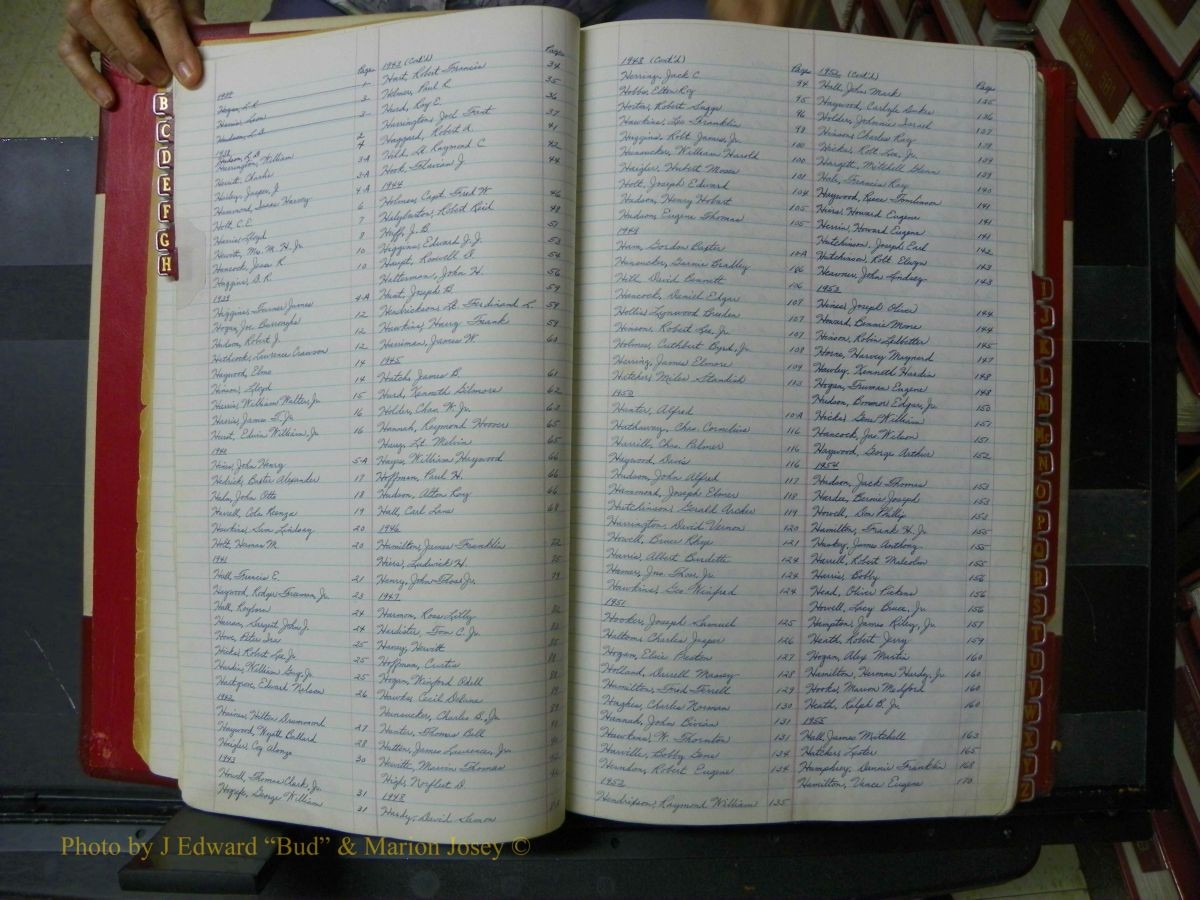 B
C
D
E
F
G
H
Pages
Hogan, L.R.
Harris, Leon
Hudson, L.B.
Hudson, L.B.
Harrington, William
Hewitt, Charles
Hailey, Jasper, J.
Hammond, Isaac Harvey
Holt, C.E.
Harris, Lloyd
Hewitt, Mrs. M. H. Jr.
Hancock, Jesse R.
Huggins, D.R.
1939
Higgins, Turner James
Hogan, Joe Burroughs
Hudson, Robert J.
Hathcock, Lawrence Crawson
Haywood, Elmo
Hinson, Lloyd
Harris, William Walter, Jr.
Harris, James T. Jr.
Hurst, Edwin William, Jr.
1940
Hines, John Henry 5-A
Hedrick, Baxter Alexander 17
Hale, John Otto 18
Howell, Cola Renza 19
Hawkins, Sim Lindsey 20
Holt, Herman M. 20
1941
Hall, Francis E. 21
Haywood, Rodger Freeman, Jr. 23
Hall, Raeford 24
Harman, Sargent John J. 24
Hove, Peter Ivar 25
Hicks, Robert Lee, Jr. 25
Hardin, William Guy, Jr. 25
Hartgrove, Edward Nelson 26
1942
Haines, Hilton Drummond
Haywood, Wyatt Ballard 27
Haigler, Coy Alonzo 28
1943 30
Howell, Thomas Clark, Jr.
George William 31
31
1943 (Cont'd) Pages
Hart, Robert Francis 34
Helmer, Paul L. 35
Hurd, Roy E. 36
Harrington, Joel Trent 37
Haggard, Robert A. 41
Held, Lt. Raymond C. 42
Hook, Flavian J. 44
1944
Holmes, Capt. Fred W. 46
Halyburton, Robert Reid 48
Hoff, J.B. 51
Higgins, Edward J.J. 53
Haupt, Roswell D. 54
Halterman, John H. 56
Hunt, Joseph B. 57
Hendrickson, Lt. Ferdinand L. 59
Hawkins, Harry Frank 59
Harriman, James W. 60
1945
Hatch, James B. 61
Hurd, Kenneth Gilmore 62
Holder, Chas. W. Jr. 63
Hannah, Raymond Hoover 65
Henry, Lt. Melvin 65
Hayes, William Haywood 66
Hoffman, Paul H. 66
Hudson, Alton Ray 66
Hall, Carl Lane 68
1946
Hamilton, James Franklin 72
Hiers, Ludwick H. 75
Henry, John Thos. Jr. 79
1947
Harmon, Ross Lilly
Hardister, Tom C. Jr.
Haney, Hewitt
Hoffman, Curtis
Hogan, Winford Odell
Hawks, Cecil Delane
Hunsucker, Charles B., Jr.
Hunter, Thomas Bell
Hutton, James Lawrence, Jr.
Hewitt, Marvin Thomas
High, Norfleet D.
1948
Hardy, David Simon
1948 (Cont'd) Pages
Herring, Jack C. 94
Hobbs, Elton Ray 95
Horton, Robert Suggs 96
Hawkins, Leo Franklin 98
Huggins, Robt. James, Jr. 100
Hunsucker, William Harold 100
Haigler, Hubert Moses 101
Holt, Joseph Edward 104
Hudson, Henry Hobart 105
Hudson, Eugene Thomas 105
1949
Ham, Gordon Baxter 10-A
Hunsucker, Garnie Bradley 106
Hill, David Bennett 106
Hancock, Daniel Edgar 107
Hollis, Lynwood Burden 107
Henson, Robert Lee, Jr. 107
Holmes, Cuthbert Byrd, Jr. 108
Herring, James Elmore 109
Hatcher, Miles Standish 113
1950
Hunter, Alfred 10-A
Hathaway, Chas. Cornelius 116
Harrill, Chas. Palmer 116
Haywood, Davis 116
Hudson, John Alfred 117
Hammond, Joseph Elmer 118
Hutchinson, Gerald Archer 119
Harrington, David Vernon 120
Howell, Bruce Rhyne 121
Harris, Albert Burdette 124
Hamer, Jno. Thos. Jr. 124
Hawkins, Geo. Winifred 124
1951
Hooker, Joseph Samuel 125
Haltom, Charles Jasper 126
Hogan, Elsie Preston 127
Holland, Durrell Massey 128
Hamilton, Fred Terrell 129
Hughes, Charles Norman 130
Hannah, John Bivian 131
Hawkins, W. Thornton 131
Harville, Bobby Gene 134
Herndon, Robert Eugene 134
1952
Hendrickson, Raymond William 135
1952 (Cont'd) Pages
Hall, John Mark 135
Haywood, Carlyle Timken 136
Holder, Johnnie Israel 137
Hinson, Charles Ray 139
Hicks, Robt. Lee, Jr. 139
Hargett, Mitchell Glenn 139
Hale, Francis Ray 140
Haywood, Reese Tomlinson 141
Hearse, Howard Eugene 141
Herrin, Howard Eugene 141
Hutchinson, Joseph Earl 142
Hutchinson, Robt. Elwyn 143
Heavner, John Lindsay 143
1953
Hines, Joseph Oliver 144
Howard, Bennie Moore 144
Hinson, Robin Ledbetter 145
Horne, Harvey Maynard 147
Hawley, Kenneth Hardin 148
Hogan, Truman Eugene 148
Hudson, Edgar, Jr. 150
Hicks, Gene William 151
Hancock, Jno. Wilson 151
Haywood, George Arthur 152
1954
Hudson, Jack Thomas 153
Hardee, Bernie Joseph 153
Howell, Don Phillip 153
Hamilton, Frank H. Jr. 155
Huskey, James Anthony 155
Harrell, Robert Malcolm 155
Harris, Bobby 156
Head, Oliver Pickens 156
Howell, Lacy Bruce, Jr. 156
Hampton, James Riley, Jr. 157
Heath, Robert Jerry 159
Hogan, Alex Martin 160
Hamilton, Herman Hardy, Jr. 160
Hooks, Marion Medford 160
Heath, Ralph B. Jr. 160
1955
Hall, James Mitchell 163
Hatcher, Lester 165
Humphrey, Dannie Franklin 168
Hamilton, Vance Eugene 170
I
J
K
L
M
Mc
N
O
P
Q
R
S
T
U
V
W
X
Y
Z
Photo by J Edward “Bud” & Marion Josey ©